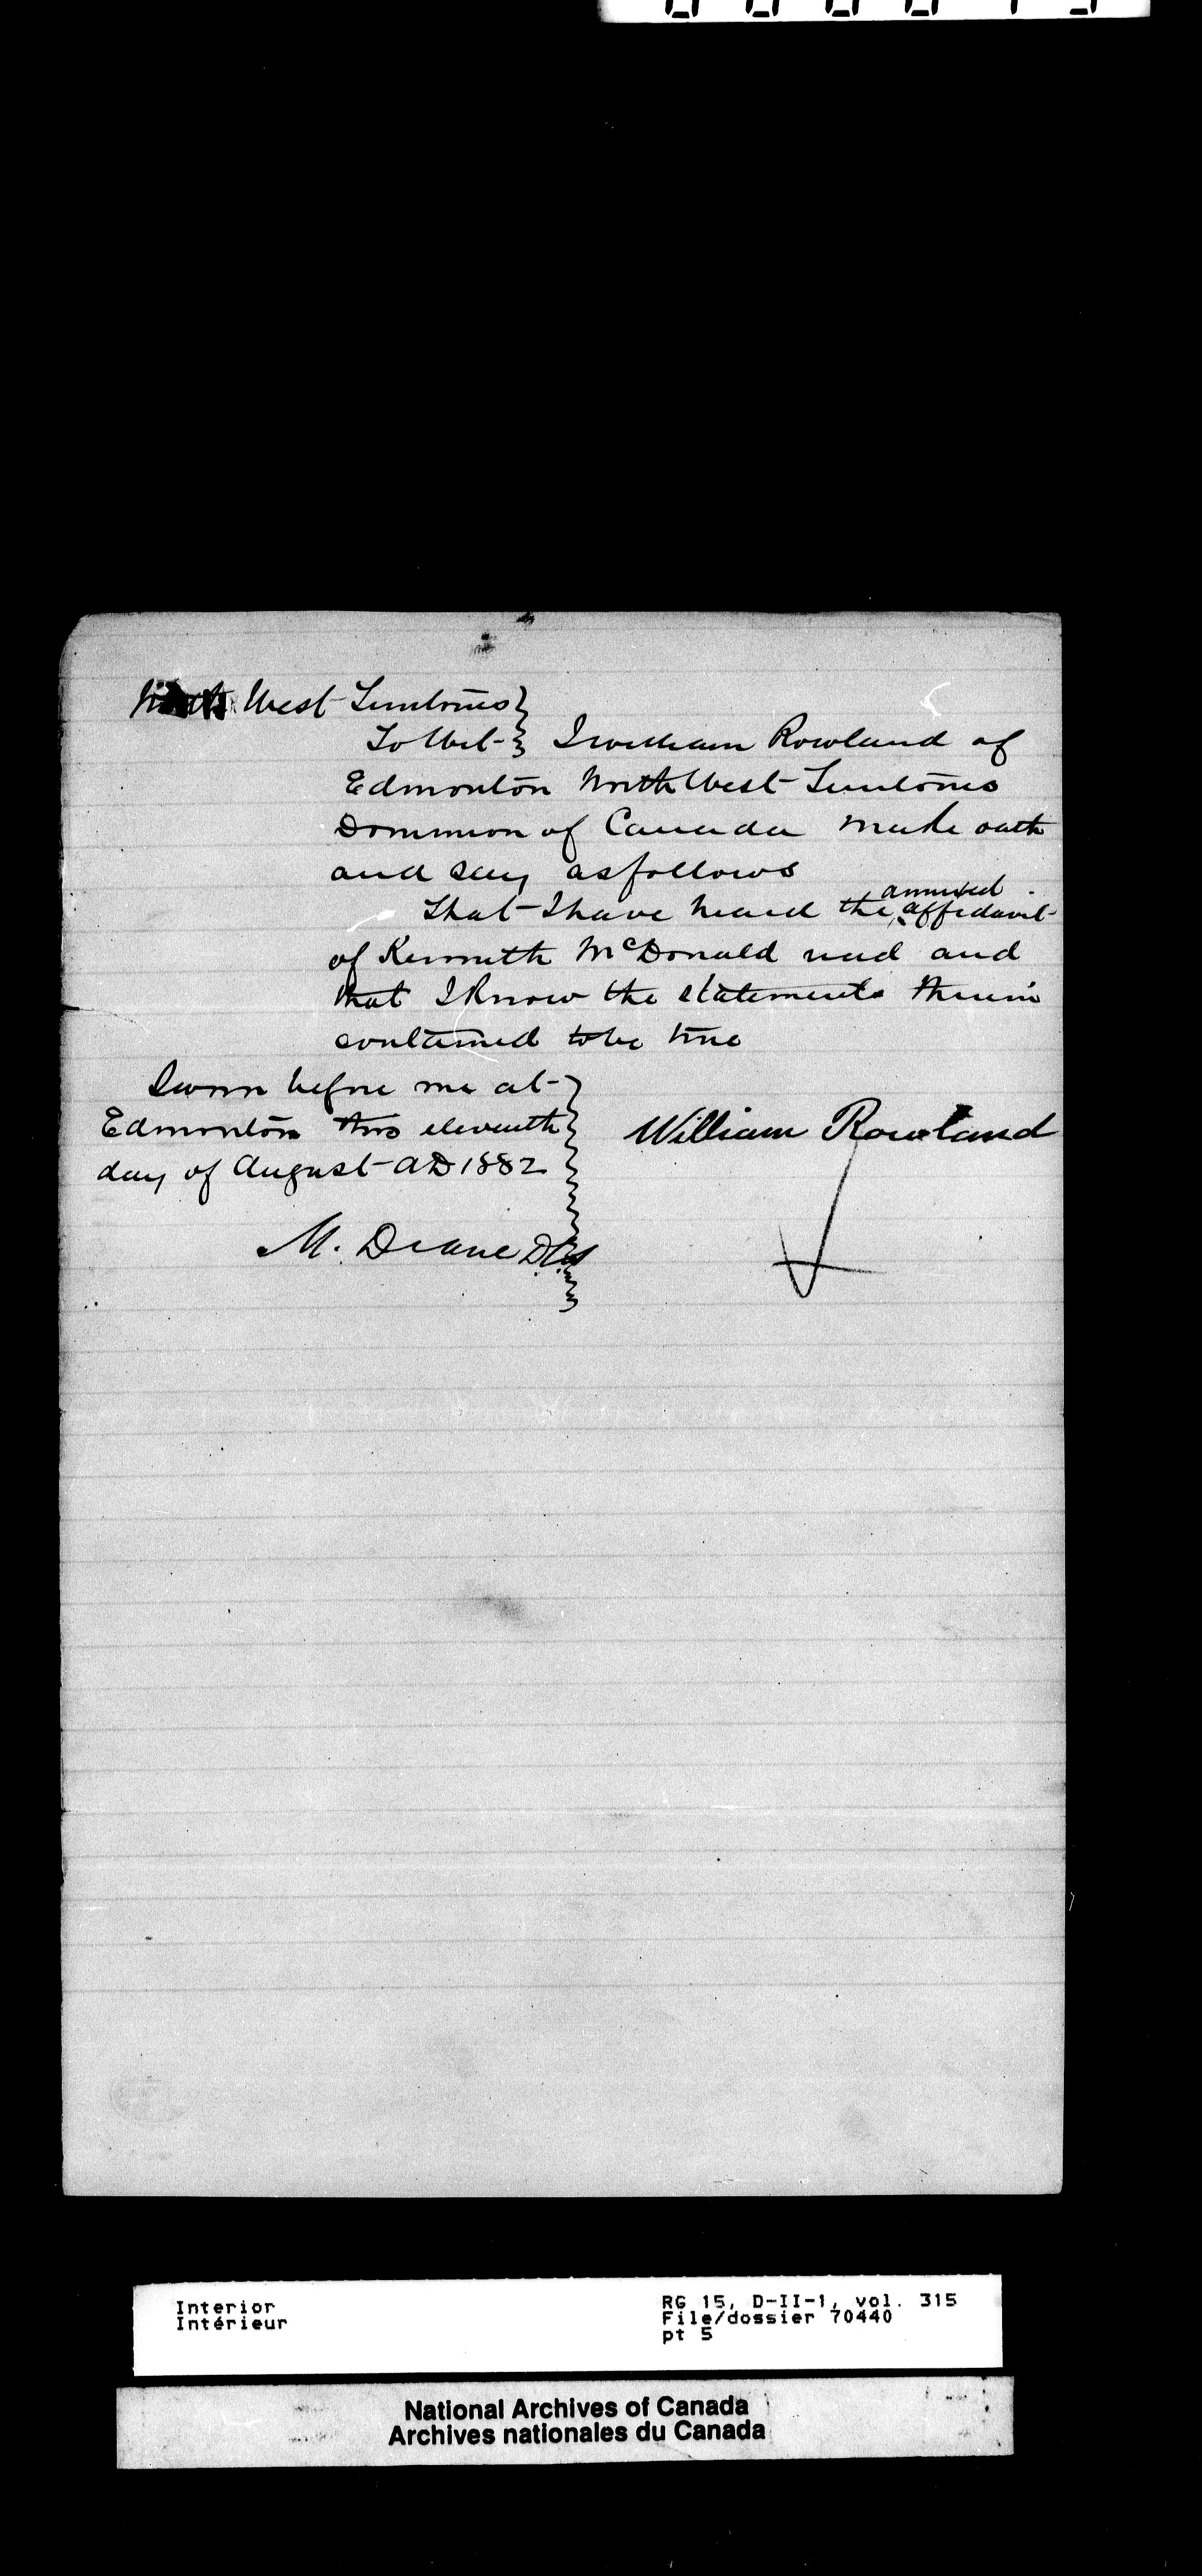 North West Territories
To Wit I William Rowland of
Edmonton North West Territories
Dominion of Canada make oath
and say as follows
That I have heard the annexed affidavit
of Kenneth McDonald read and
that I know the statements therein
contained to be true
Sworn before me at
Edmonton this eleventh
day of August AD 1882
William Rowland
M. Deane DLS
Interior
Intérieur
RG 15, D-II-1, vol. 315
File/dossier 70440
pt 5
National Archives of Canada
Archives nationales du Canada